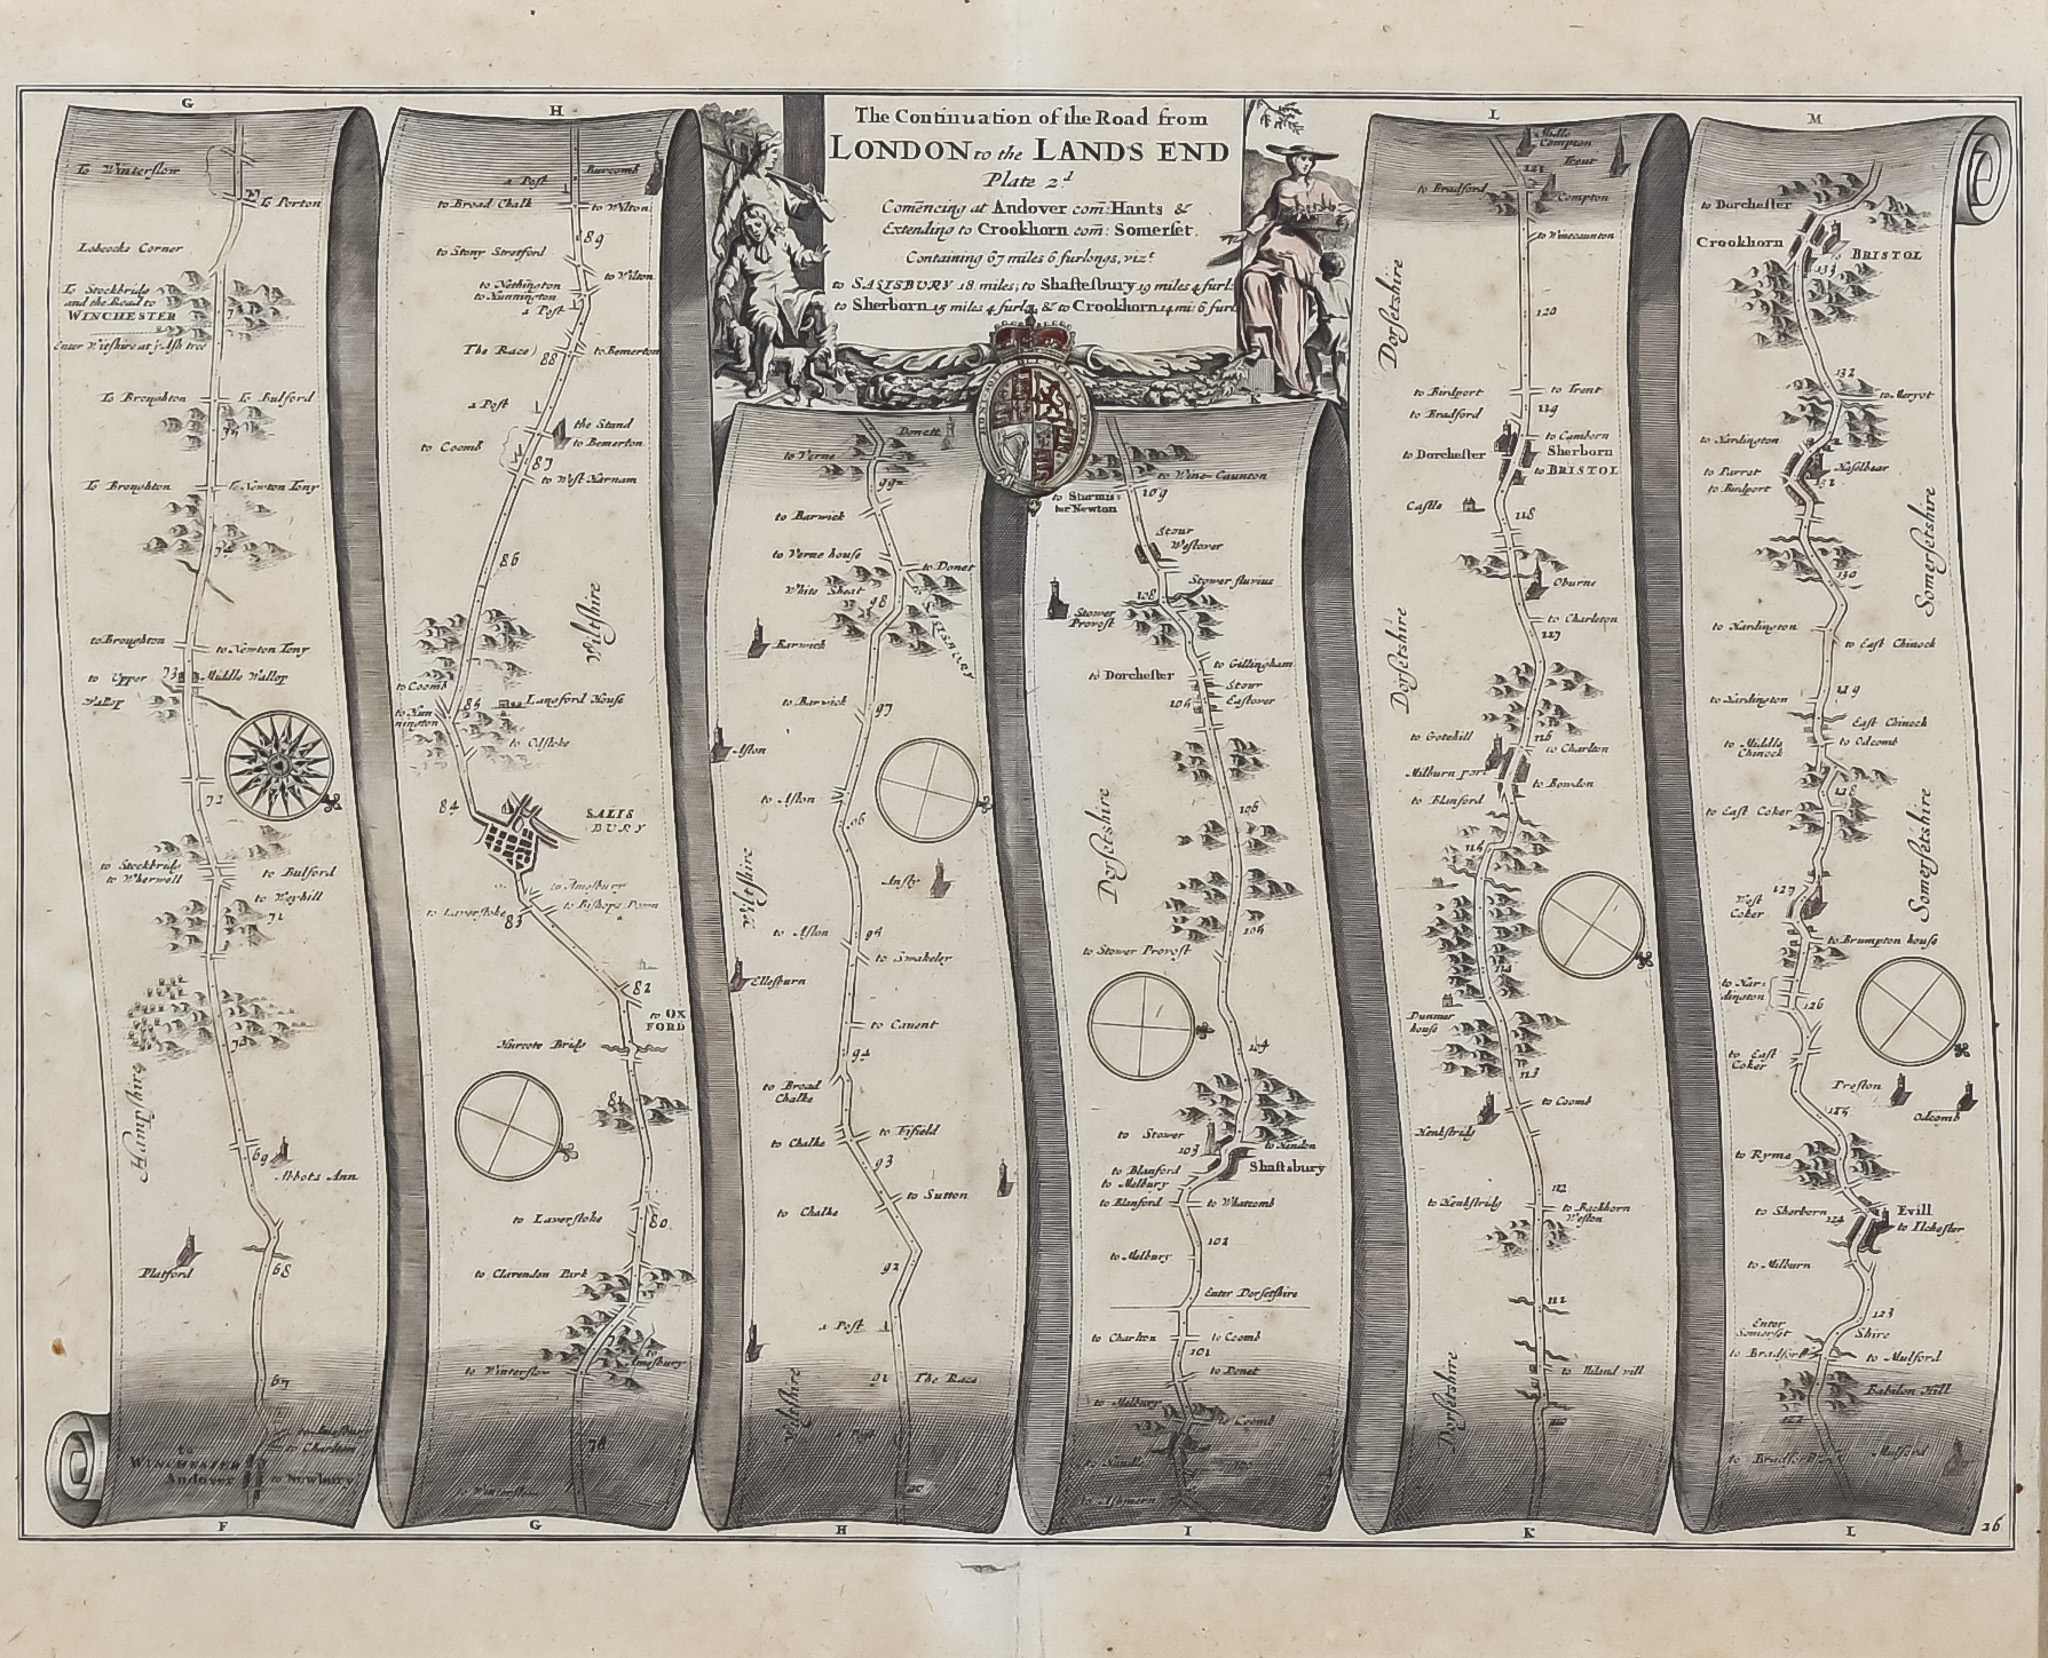 The Continuation of the Road from
LONDON to the LANDS END
Plate 2.d
Com̄encing at Andover com̄: Hants &
Extending to Crookhorn com̄: Somerset.
Containing 67 miles 6 furlongs, vizt.
to SALISBURY 18 miles; to Shaftesbury 19 miles 4 furl:
to Sherborn 15 miles 4 furl: & to Crookhorn 14 mi: 6 furl
G
To Winterslow
77
To Porton
Lobcocks Corner
To Stockbridg
and the Road to
WINCHESTER
Enter Wiltshire at ye Ash tree
To Broughton
To Bulford
75
To Broughton
To Newton Tony
74
to Broughton
to Newton Tony
to Upper
Wallop
73
Middle Wallop
72
to Stockbridg
to Wherwell
to Bulford
to Weyhill
71
70
Hampshire
69
Abbots Ann
Platford
68
67
to Charlton
to
WINCHESTER
Andover
to Newbury
F
H
Burcomb
a Post
to Broad Chalk
to Wilton
89
to Stony Stretford
to Wilton
to Nethington
to Nunnington
a Post
The Race
88
to Bemerton
a Post
the Stand
to Coomb
to Bemerton
87
to West Harnam
86
Wiltshire
to Coomb
85
Langford House
to Nun
nington
to Odstoke
84
SALIS
BURY
to Amesbury
to Laverstoke
to Bishops Down
83
82
to OX
FORD
Murcote Bridg
81
to Laverstoke
80
to Clarendon Park
to
Amesbury
to Winterslow
78
to Winterslow
G
Donett
to Verne
99
to Barwick
to Verne house
to Donet
White Sheat
98
SALISBURY
Barwick
to Barwick
97
Aston
to Aston
96
Ansty
Wiltshire
to Aston
95
to Swakeley
Ellesburn
to Cavent
94
to Broad
Chalke
to Chalke
to Fifield
93
to Sutton
to Chalke
92
a Post
91
The Race
Wiltshire
a Post
90
H
K
to Wine-Caunton
109
to Sturmis-
ter Newton
Stour
Westover
Stower fluvius
108
Stower
Provost
to Gillingham
to Dorchester
Stour
Eastover
106
Dorsetshire
105
to Stower Provost
104
to Stower
103
Shaftsbury
to Blanford
to Melbury
to Blanford
to Whatcomb
102
to Melbury
Enter Dorsetshire
to Charlton
to Coomb
101
to Donet
to Melbury
to Coomb
100
I
L
Midle
Compton
Trent
121
to Bradford
Compton
to Winecaunton
Dorsetshire
120
to Birdport
to Trent
119
to Bradford
to Camborn
Sherborn
to Dorchester
to BRISTOL
Castle
118
Oburne
to Charlston
117
Dorsetshire
116
to Gotehill
to Charlton
Milburn port
to Bowdon
to Blanford
Dunmer
house
113
to Coomb
Henkstridg
112
to Henkstridg
to Backhorn
Weston
111
to Niland vill
Dorsetshire
110
K
M
to Dorchester
Crookhorn
BRISTOL
133
132
to Meryot
to Hardington
Haselbear
to Parrot
to Birdport
Somersetshire
130
to Hardington
to East Chinock
to Hardington
East Chinock
to Middle
Chinock
to Odcomb
to East Coker
Somersetshire
127
West
Coker
to Brumpton house
to Har-
dington
126
to East
Coker
Preston
125
Odcomb
to Ryme
to Sherborn
124
Evill
to Ilchester
to Milburn
123
Enter
Somerset
Shire
to Bradford
to Mulford
Babilon Hill
122
Mulford
to Bradford
L
26